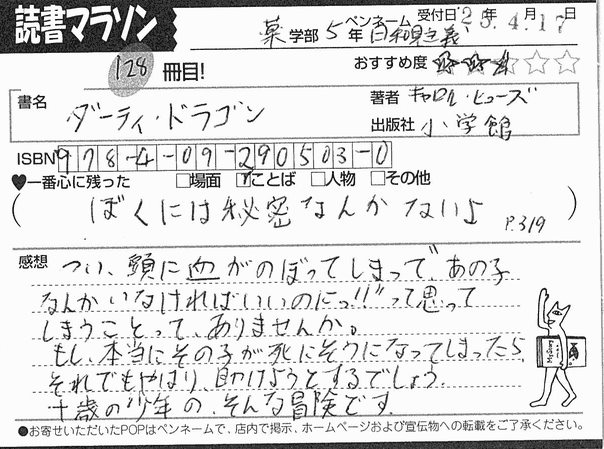 読書マラソン
受付日:'23年4月17日
薬学部5年 ペンネーム 日和見主義
128冊目!
おすすめ度 ★★★☆☆
書名 ダーティ・ドラゴン
著者 キャロル・ヒューズ
出版社 小学館
ISBN 978-4-09-290503-0
♥一番心に残った □場面 ☑ことば □人物 □その他
(ぼくには秘密なんかないよ P.319)
感想 つい、頭に血がのぼってしまって、"あの子
なんかいなければいいのにっ!!"って思って
しまうことって、ありませんか。
もし、本当にその子が死にそうになってしまったら、
それでもやはり、助けようとするでしょう。
十歳の少年の、そんな冒険です。
●お寄せいただいたPOPはペンネームで、店内で掲示、ホームページおよび宣伝物への転載をご了承ください。